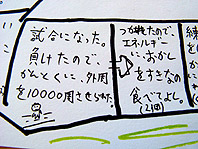 試合になった。
負けたので、
かんとくに、外周
を10000周させられた。
つかれたので、
エネルギー
に、おかし
をすきなの
食べてよし。
(2回)
練